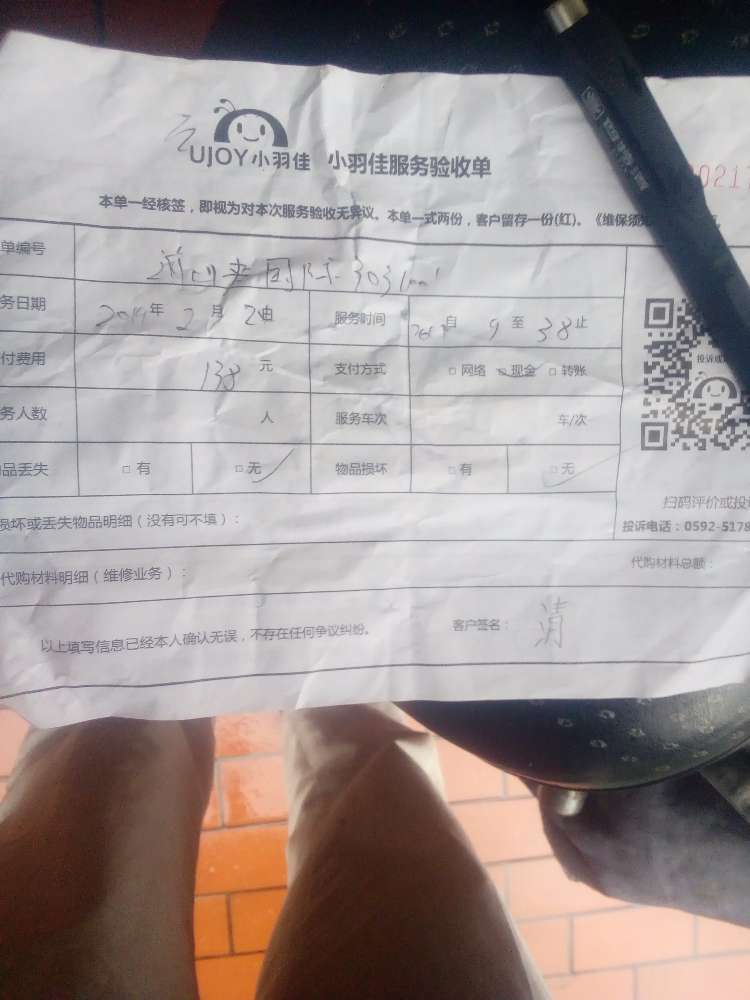 UJOY小羽佳 小羽佳服务验收单
0021
本单一经核签，即视为对本次服务验收无异议。本单一式两份，客户留存一份(红)。《维保须
单编号
务日期 年 2 月 服务时间 自 9 至 38 止
付费用 138 元 支付方式 □ 网络 □ 现金 □ 转账
务人数 人 服务车次 车/次
品丢失 □ 有 □ 无 物品损坏 □ 有 □ 无
投诉或
扫码评价或投
投诉电话：0592-5178
损坏或丢失物品明细（没有可不填）：
代购材料明细（维修业务）： 代购材料总额：
以上填写信息已经本人确认无误，不存在任何争议纠纷。 客户签名： 清